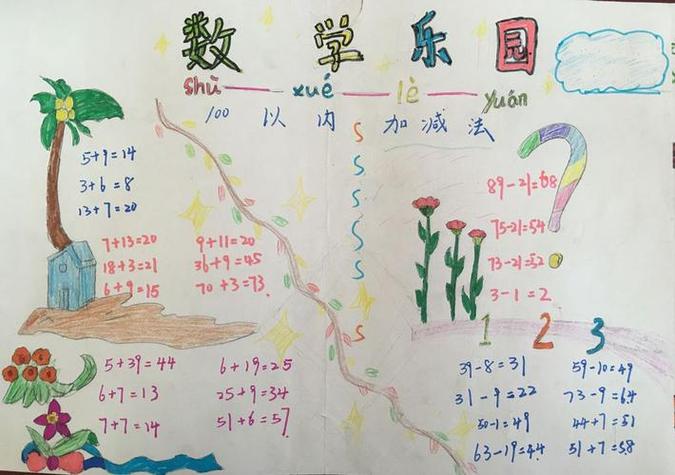 数学乐园
shù xué lè yuán
100以内加减法
5+9=14
3+6=8
13+7=20
7+13=20
18+3=21
6+9=15
9+11=20
36+9=45
70+3=73
S
S
S
S
S
S
89-21=68
75-21=54
73-21=52
3-1=2
1 2 3
5+39=44
6+7=13
7+7=14
6+19=25
25+9=34
51+6=57
39-8=31
31-9=22
50-1=49
63-19=44
59-10=49
73-9=64
44+7=51
51+7=58